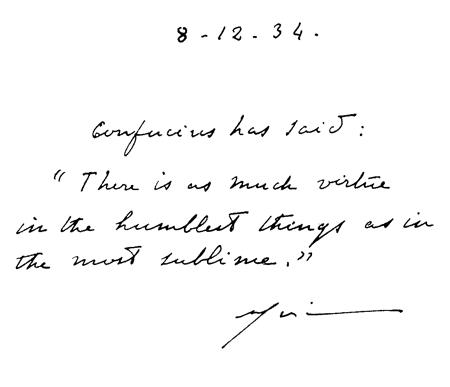 8-12.34.
Confucius has said:
"There is as much virtue
in the humblest things as in
the most sublime."